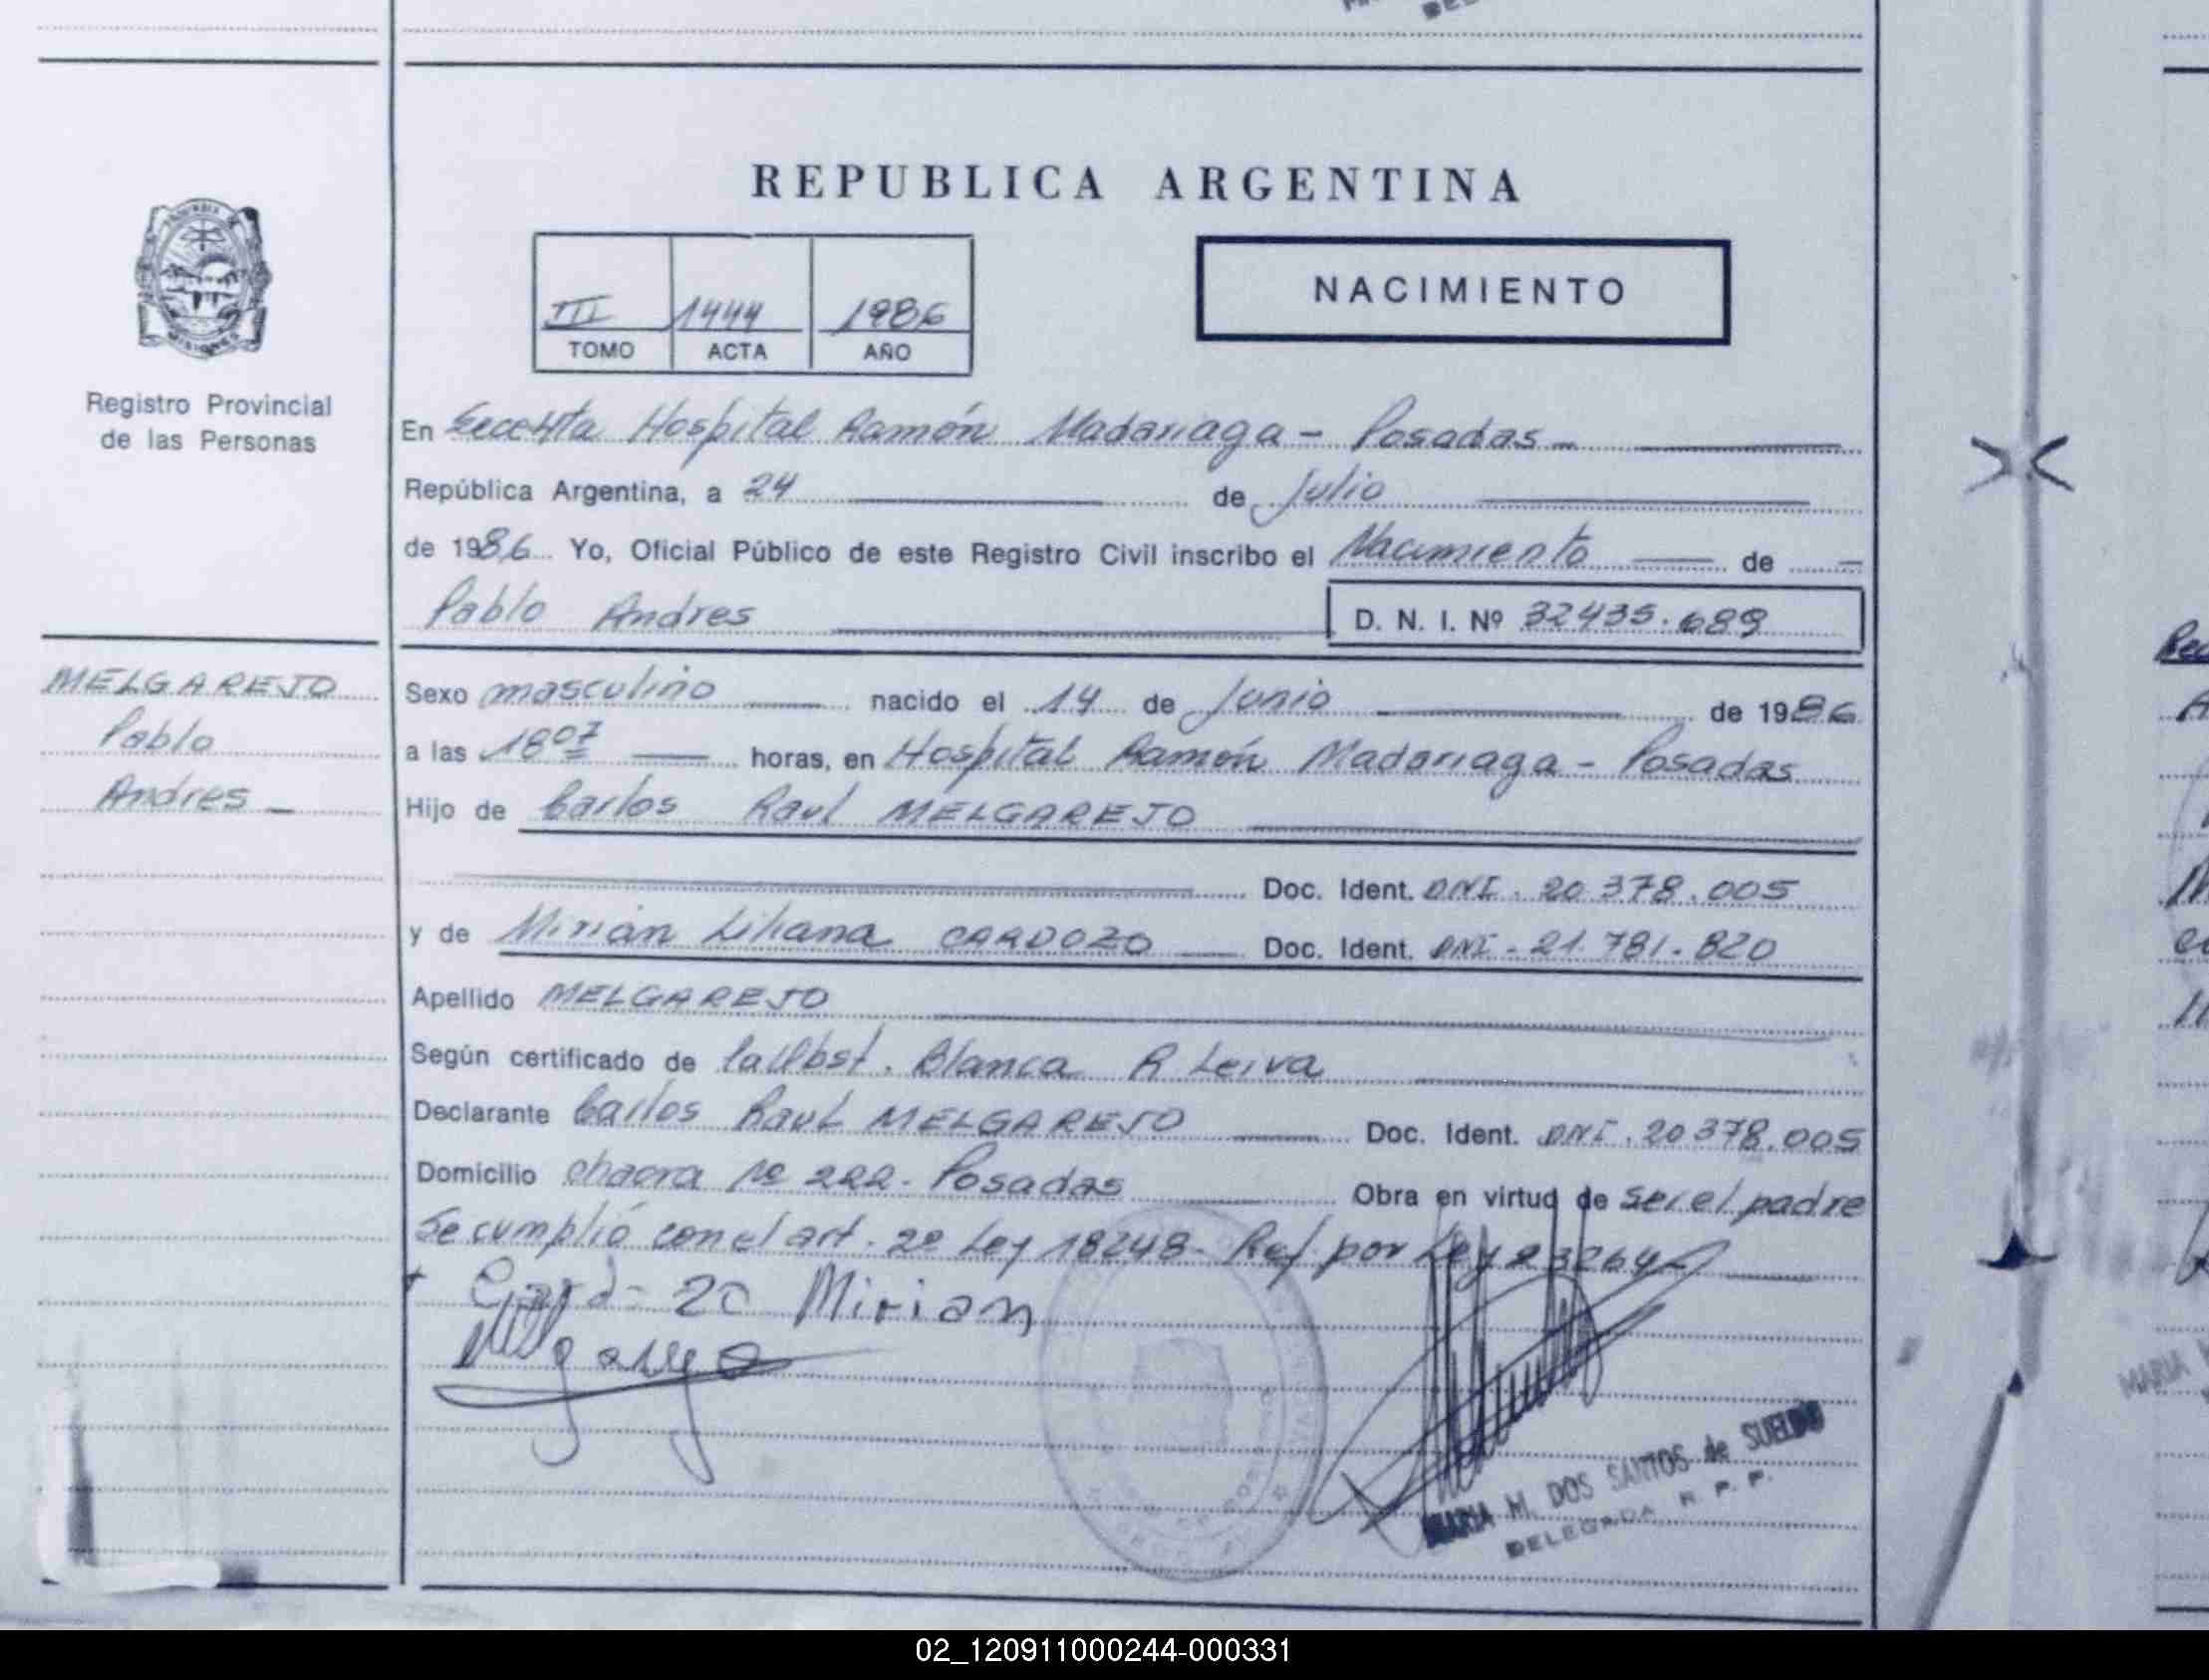 REPUBLICA ARGENTINA
III 1444 1986
TOMO ACTA AÑO
NACIMIENTO
Registro Provincial
de las Personas
En Hospital Ramón Madariaga - Posadas
República Argentina, a 24 de Julio
de 1986 Yo, Oficial Público de este Registro Civil inscribo el Nacimiento de
Pablo Andres D. N. I. Nº 32435.689
MELGAREJO
Pablo
Andres
Sexo masculino nacido el 14 de Junio de 1986
a las 18 07 horas, en Hospital Ramón Madariaga - Posadas
Hijo de Carlos Raul MELGAREJO
Doc. Ident. DNI. 20.378.005
y de Mirian Liliana CARDOZO Doc. Ident. DNI - 21.781.820
Apellido MELGAREJO
Según certificado de la Obst. Blanca R Leiva
Declarante Carlos Raul MELGAREJO Doc. Ident. DNI. 20378.005
Domicilio chacra Nº 222 - Posadas Obra en virtud de ser el padre
Se cumplió con el art. 2º Ley 18248 - Ref. por Ley 23264
Mirian
MARIA M. DOS SANTOS de SUELDO
DELEGADA R. P. P.
02_120911000244-000331